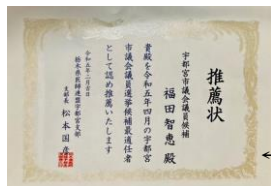 推薦状
宇都宮市議会議員候補
福田智恵 殿
貴殿を令和五年四月の宇都宮
市議会議員選挙候補最適任者
として認め推薦いたします
令和五年二月吉日
栃木県医師連盟宇都宮支部
支部長 松本国彦